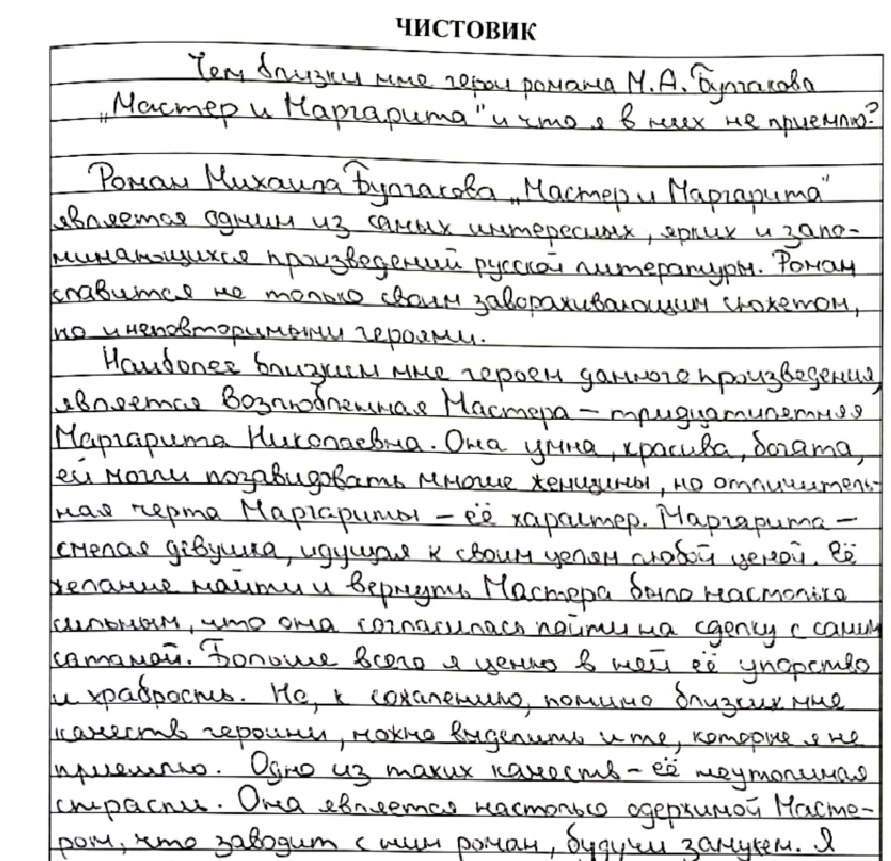 ЧИСТОВИК
Чем близки мне герои романа М.А. Булгакова
„Мастер и Маргарита" и что я в них не приемлю?
Роман Михаила Булгакова „Мастер и Маргарита"
является одним из самых интересных, ярких и запо-
минающихся произведений русской литературы. Роман
славится не только своим завораживающим сюжетом,
но и неповторимыми героями.
Наиболее близким мне героем данного произведения,
является возлюбленная Мастера – тридцатилетняя
Маргарита Николаевна. Она умна, красива, богата,
ей могли позавидовать многие женщины, но отличитель-
ная черта Маргариты – её характер. Маргарита –
смелая девушка, идущая к своим целям любой ценой. Её
желание найти и вернуть Мастера было настолько
сильным, что она согласилась пойти на сделку с самим
сатаной. Больше всего я ценю в ней её упорство
и храбрость. Но, к сожалению, помимо близких мне
качеств героини, можно выделить и те, которые я не
приемлю. Одно из таких качеств – её неутолимая
страсть. Она является настолько одержимой Масте-
ром, что заводит с ним роман, будучи замужем. Я